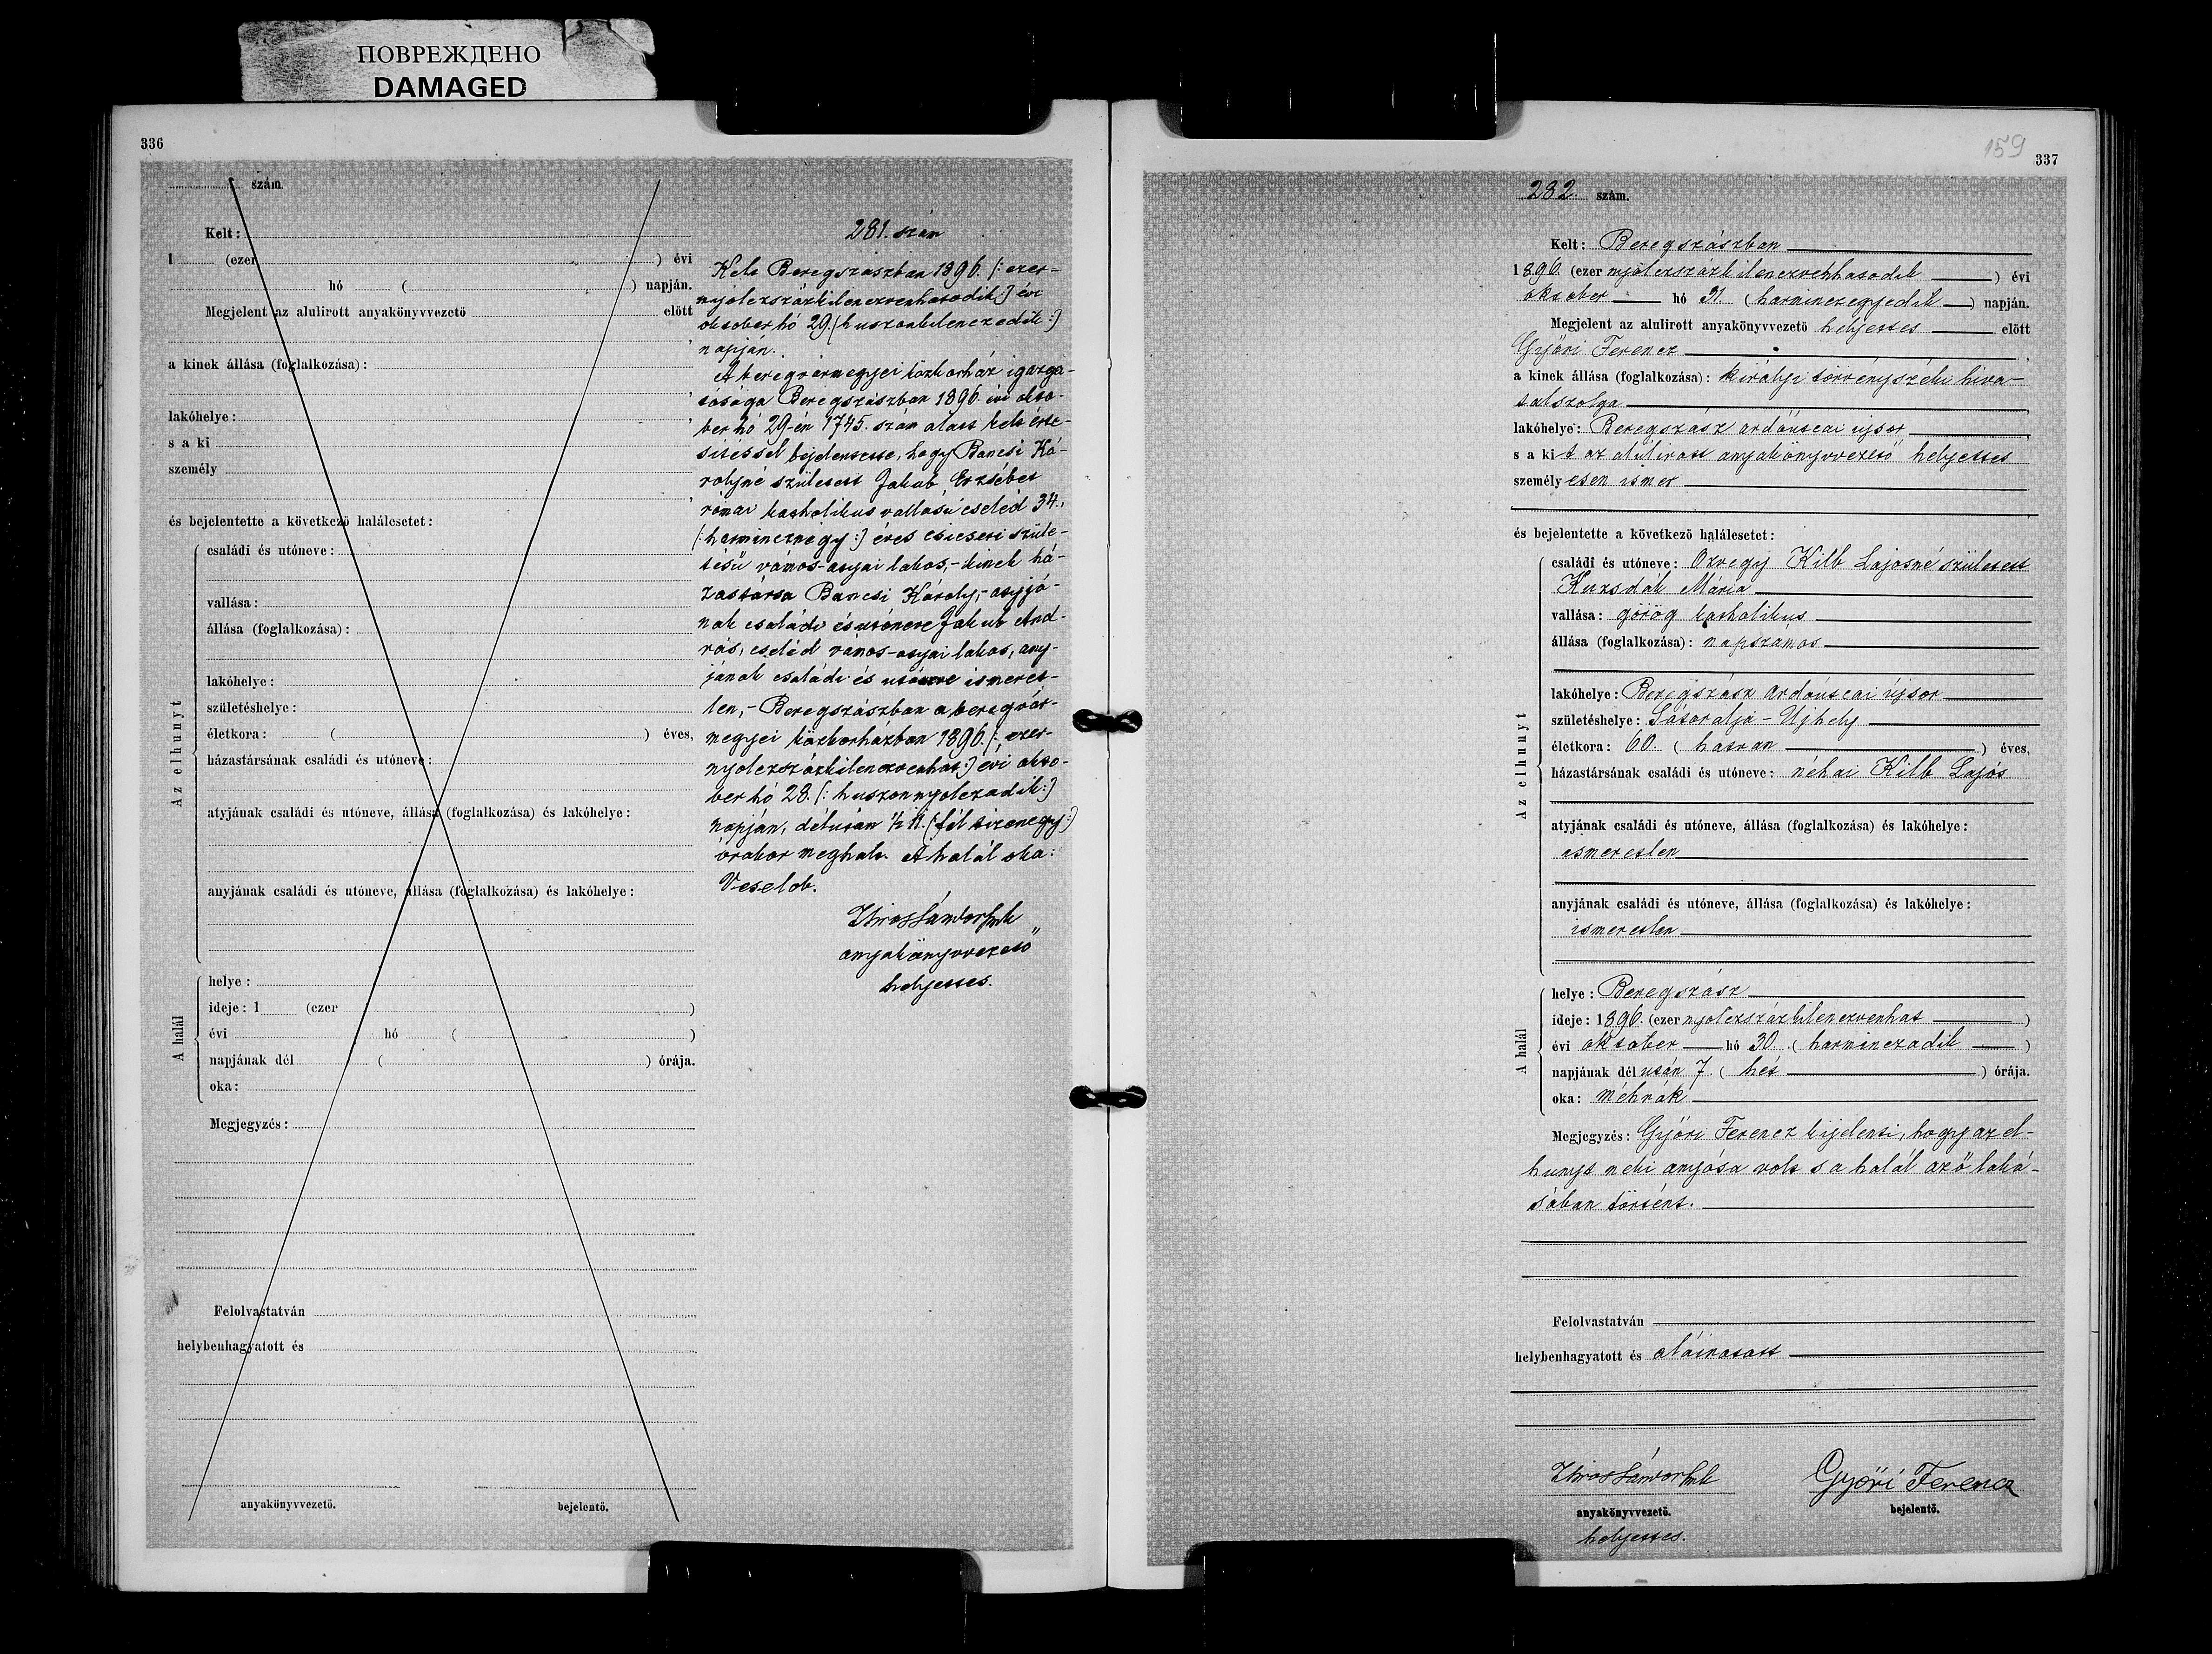 ПОВРЕЖДЕНО
DAMAGED
336
szám.
Kelt:
1 (ezer ) évi
hó ( ) napján.
Megjelent az alulirott anyakönyvvezető előtt
a kinek állása (foglalkozása):
lakóhelye:
s a ki
személy
és bejelentette a következő halálesetet:
Az elhunyt
családi és utóneve:
vallása:
állása (foglalkozása):
lakóhelye:
születéshelye:
életkora: ( ) éves,
házastársának családi és utóneve:
atyjának családi és utóneve, állása (foglalkozása) és lakóhelye:
anyjának családi és utóneve, állása (foglalkozása) és lakóhelye:
A halál
helye:
ideje: 1 (ezer )
évi hó ( )
napjának dél ( ) órája.
oka:
Megjegyzés:
Felolvastatván
helybenhagyatott és
anyakönyvvezető. bejelentő.
281. szám
Kelt Beregszászban 1896. (:ezer-
nyolczszázkilenczvenhatodik:) évi
október hó 29. (huszonkilenczedik:)
napján.
A beregvármegyei közkórház igazga-
tósága Beregszászban 1896. évi októ-
ber hó 29-én 1745. szám alatt kelt érte-
sitéssel bejelentette, hogy Bancsi Ká-
rolyné született Jakab Erzsébet
római katholikus vallású cseléd 34.,
(:harmincznégy:) éves csicseri szüle-
tésű vámos-atyai lakos,- kinek há-
zastársa Bancsi Károly,- atyjá-
nak családi és utóneve Jakab And-
rás, cseléd vámos-atyai lakos, any-
jának családi és utóneve ismeret-
len,- Beregszászban a beregvár-
megyei közkórházban 1896. (:ezer-
nyolczszázkilenczvenhat:) évi októ-
ber hó 28. (:huszonnyolczadik:)
napján, délután ½ 11. (fél tizenegy:)
órakor meghalt. A halál oka:
Veselob.
anyakönyvvezető
helyettes.
159
337
282. szám.
Kelt: Beregszászban
1896. (ezer nyolczszázkilenczvenhatodik ) évi
október hó 31. (harminczegyedik ) napján.
Megjelent az alulirott anyakönyvvezető helyettes előtt
Győri Ferencz
a kinek állása (foglalkozása): királyi törvényszéki hiva-
talszolga
lakóhelye: Beregszász ardóutcai újsor
s a kit az alulirott anyakönyvvezető helyettes
személyesen ismer
és bejelentette a következő halálesetet:
Az elhunyt
családi és utóneve: Özvegy Kilb Lajosné született
Kuzsdák Mária
vallása: görög katholikus
állása (foglalkozása): napszámos
lakóhelye: Beregszász ardóutcai újsor
születéshelye: Sátoralja-Ujhely
életkora: 60. (hatvan ) éves,
házastársának családi és utóneve: néhai Kilb Lajos
atyjának családi és utóneve, állása (foglalkozása) és lakóhelye:
ismeretlen
anyjának családi és utóneve, állása (foglalkozása) és lakóhelye:
ismeretlen
A halál
helye: Beregszász
ideje: 1896. (ezer nyolczszázkilenczvenhat )
évi október hó 30. (harminczadik )
napjának délután 7. (hét ) órája.
oka: méhrák
Megjegyzés: Győri Ferencz kijelenti, hogy az el-
hunyt neki anyósa volt s a halál az ő laká-
sában történt.
Felolvastatván
helybenhagyatott és aláiratott
Győri Ferencz
anyakönyvvezető. bejelentő.
helyettes.